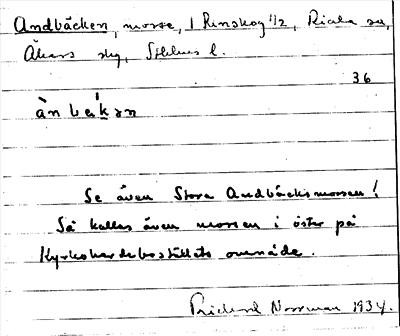 Andbäcken, mosse, 1 Rinskog 1/2, Riala sn,
Åkers skg, Sthlms l.
36
àn bεkən
Se även Stora Andbäcksmossen!
Så kallas även mossen i öster på
Kyrkoherdebostället område.
Richard Norrman 1934.